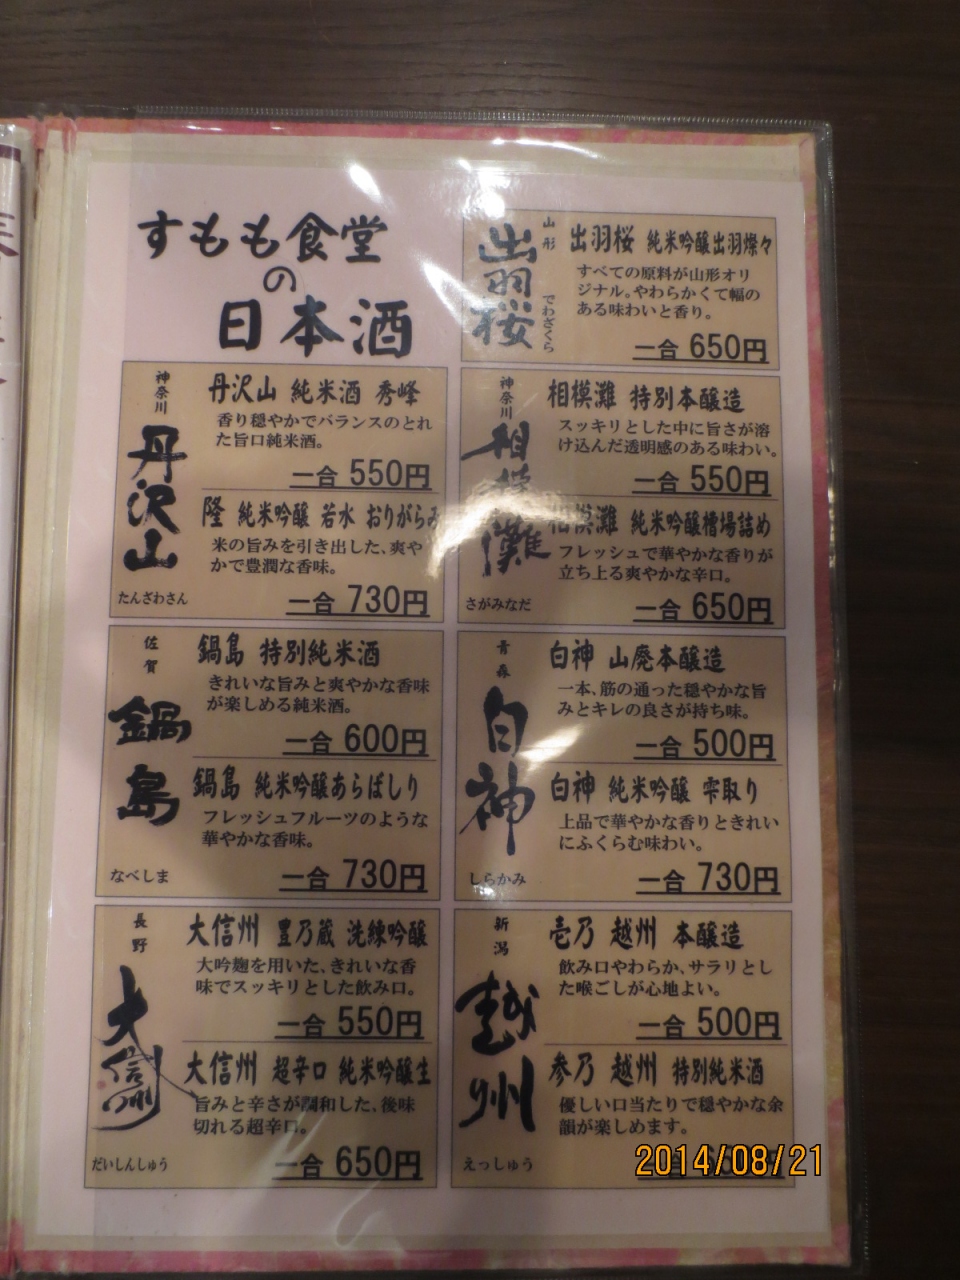 すもも食堂
の
日本酒
山形
出羽桜
でわざくら
出羽桜 純米吟醸出羽燦々
すべての原料が山形オリ
ジナル。やわらかくて幅の
ある味わいと香り。
一合 650円
神奈川
丹沢山
たんざわさん
丹沢山 純米酒 秀峰
香り穏やかでバランスのとれ
た旨口純米酒。
一合 550円
隆 純米吟醸 若水 おりがらみ
米の旨みを引き出した、爽や
かで豊潤な香味。
一合 730円
神奈川
相模灘
さがみなだ
相模灘 特別本醸造
スッキリとした中に旨さが溶
け込んだ透明感のある味わい。
一合 550円
相模灘 純米吟醸槽場詰め
フレッシュで華やかな香りが
立ち上る爽やかな辛口。
一合 650円
佐賀
鍋島
なべしま
鍋島 特別純米酒
きれいな旨みと爽やかな香味
が楽しめる純米酒。
一合 600円
鍋島 純米吟醸あらばしり
フレッシュフルーツのような
華やかな香味。
一合 730円
青森
白神
しらかみ
白神 山廃本醸造
一本、筋の通った穏やかな旨
みとキレの良さが持ち味。
一合 500円
白神 純米吟醸 雫取り
上品で華やかな香りときれい
にふくらむ味わい。
一合 730円
長野
大信州
だいしんしゅう
大信州 豊乃蔵 洗練吟醸
大吟麹を用いた、きれいな香
味でスッキリとした飲み口。
一合 550円
大信州 超辛口 純米吟醸生
旨みと辛さが調和した、後味
切れる超辛口。
一合 650円
新潟
越州
えっしゅう
壱乃 越州 本醸造
飲み口やわらか、サラリとし
た喉ごしが心地よい。
一合 500円
参乃 越州 特別純米酒
優しい口当たりで穏やかな余
韻が楽しめます。
2014/08/21